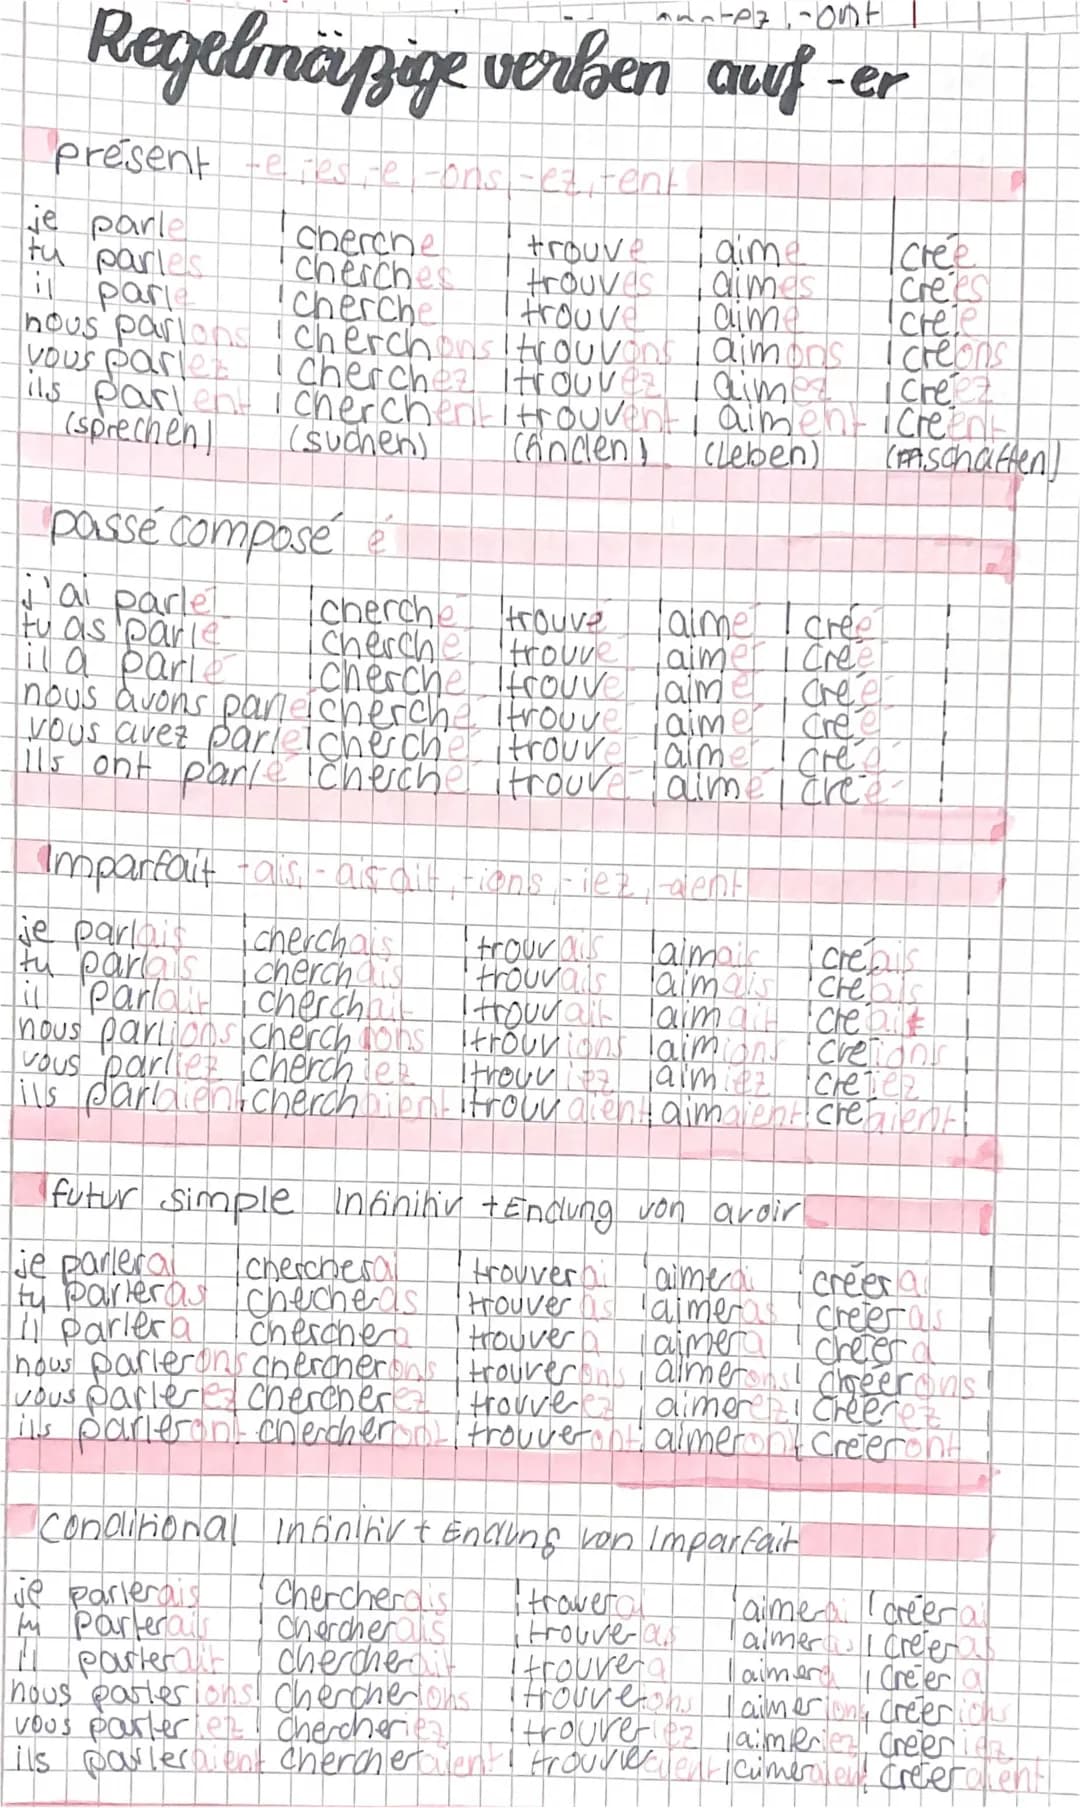 -ez, -ont
Regelmäßige verben auf -er
présent -e, -es, -e, -ons, -ez, -ent
je parle cherche trouve aime crée
tu parles cherches trouves aimes crées
il parle cherche trouve aime crée
nous parlons cherchons trouvons aimons créons
vous parlez cherchez trouvez aimez créez
ils parlent cherchent trouvent aiment créent
(sprechen) (suchen) (finden) (Leben) (schaffen)
passé composé é
j'ai parlé cherché trouvé aimé créé
tu as parlé cherché trouvé aimé créé
il a parlé cherché trouvé aimé créé
nous avons parlé cherché trouvé aimé créé
vous avez parlé cherché trouvé aimé créé
ils ont parlé cherché trouvé aimé créé
Imparfait -ais, -ais, -ait, -ions, -iez, -aient
je parlais cherchais trouvais aimais créais
tu parlais cherchais trouvais aimais créais
il parlait cherchait trouvait aimait créait
nous parlions cherchions trouvions aimions créions
vous parliez cherchiez trouviez aimiez créiez
ils parlaient cherchaient trouvaient aimaient créaient
futur simple Infinitiv + Endung von avoir
je parlerai chercherai trouverai aimerai créerai
tu parleras chercheras trouveras aimeras créeras
il parlera cherchera trouvera aimera créera
nous parlerons chercherons trouverons aimerons créerons
vous parlerez chercherez trouverez aimerez créerez
ils parleront chercheront trouveront aimeront créeront
conditional Infinitiv + Endung von Imparfait
je parlerais chercherais trouverai aimerai créerai
tu parlerais chercherais trouveras aimeras créeras
il parlerait chercherait trouvera aimera créera
nous parlerions chercherions trouverions aimerions créerions
vous parleriez chercheriez trouveriez aimeriez créeriez
ils parleraient chercheraient trouveraient aimeraient créeraient